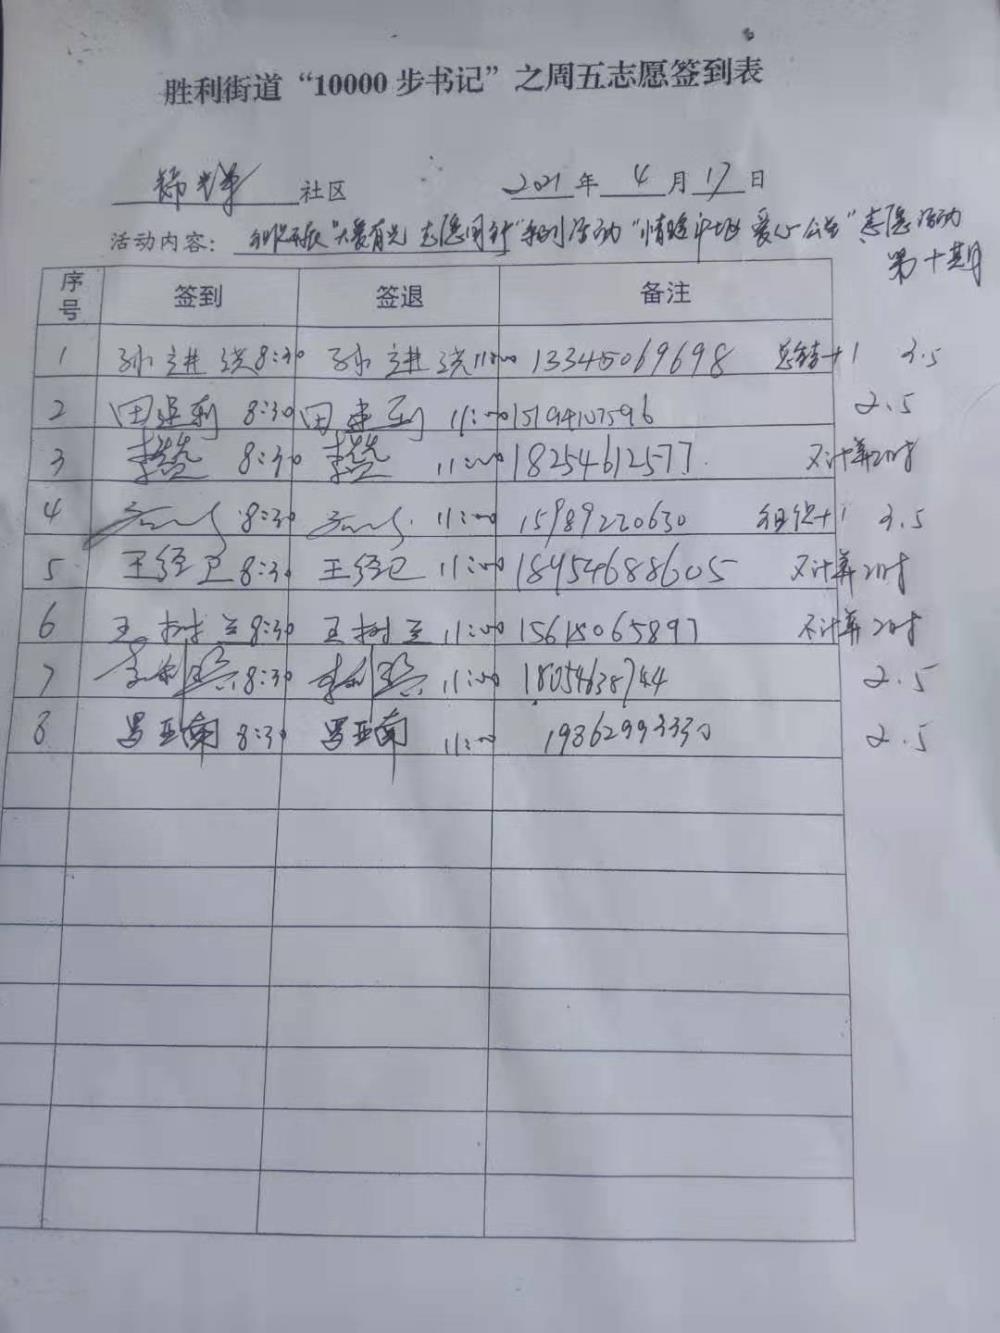 胜利街道“10000步书记”之周五志愿签到表
锦华 社区 2021年 4月17日
活动内容: “大爱有光 志愿同行”系列活动“情暖 爱心公益”志愿活动
第十期
序号 签到 签退 备注
1 孙进洪 8:30 孙进洪 11:00 13345069698 总结+1 3.5
2 田建利 8:30 田建利 11:00 15194107596 2.5
3 8:30 11:00 18254612577 不计算工时
4 8:30 11:00 15989220630 组织+1 3.5
5 王经卫 8:30 王经卫 11:00 18954688605 不计算工时
6 王树兰 8:30 王树兰 11:00 15615065897 不计算工时
7 8:30 11:00 18054638744 2.5
8 罗亚南 8:30 罗亚南 11:00 19862993330 2.5